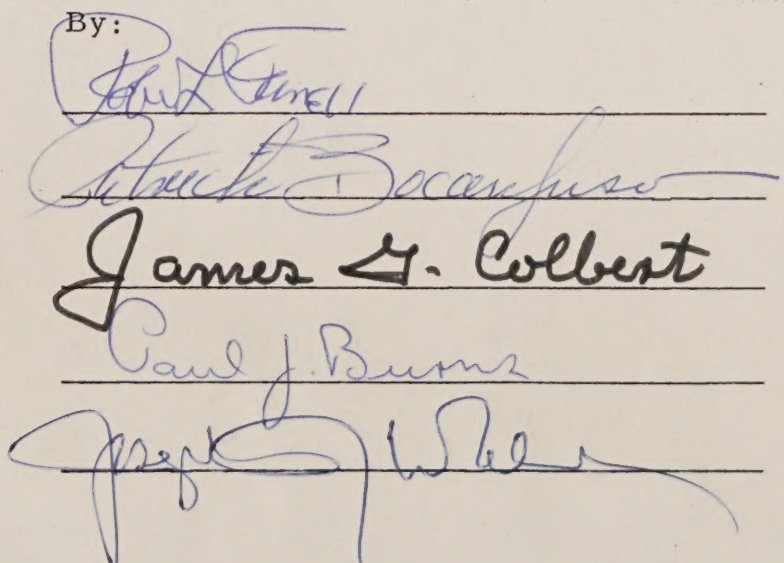 By:
Robert L. Farrell
Patrick Bocanfuso
James G. Colbert
Paul J. Burns
Joseph J. Walsh